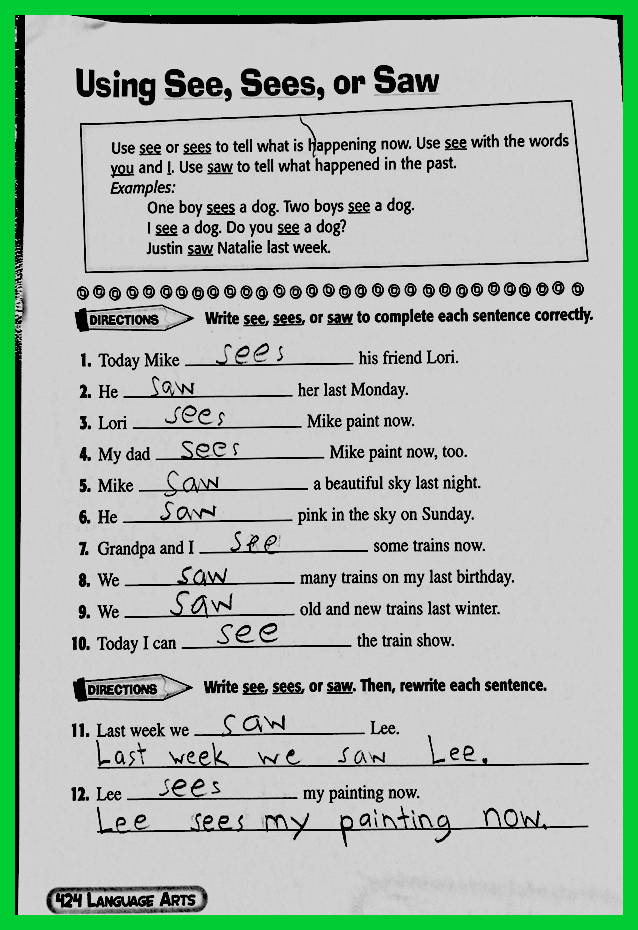 Using See, Sees, or Saw
Use see or sees to tell what is happening now. Use see with the words
you and I. Use saw to tell what happened in the past.
Examples:
One boy sees a dog. Two boys see a dog.
I see a dog. Do you see a dog?
Justin saw Natalie last week.
DIRECTIONS Write see, sees, or saw to complete each sentence correctly.
1. Today Mike sees his friend Lori.
2. He saw her last Monday.
3. Lori sees Mike paint now.
4. My dad sees Mike paint now, too.
5. Mike saw a beautiful sky last night.
6. He saw pink in the sky on Sunday.
7. Grandpa and I see some trains now.
8. We saw many trains on my last birthday.
9. We saw old and new trains last winter.
10. Today I can see the train show.
DIRECTIONS Write see, sees, or saw. Then, rewrite each sentence.
11. Last week we saw Lee.
Last week we saw Lee.
12. Lee sees my painting now.
Lee sees my painting now.
424 LANGUAGE ARTS